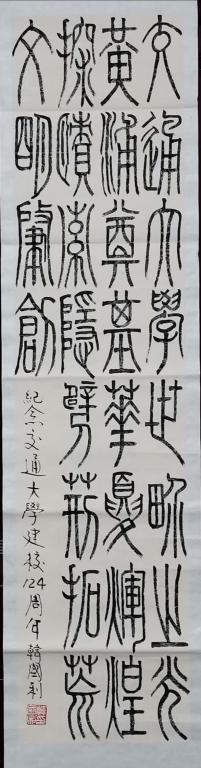 交通大學世界之光
黃浦奠基華夏輝煌
探賾索隱劈荊拓荒
文明肇創
紀念交通大學建校124周年韓國利